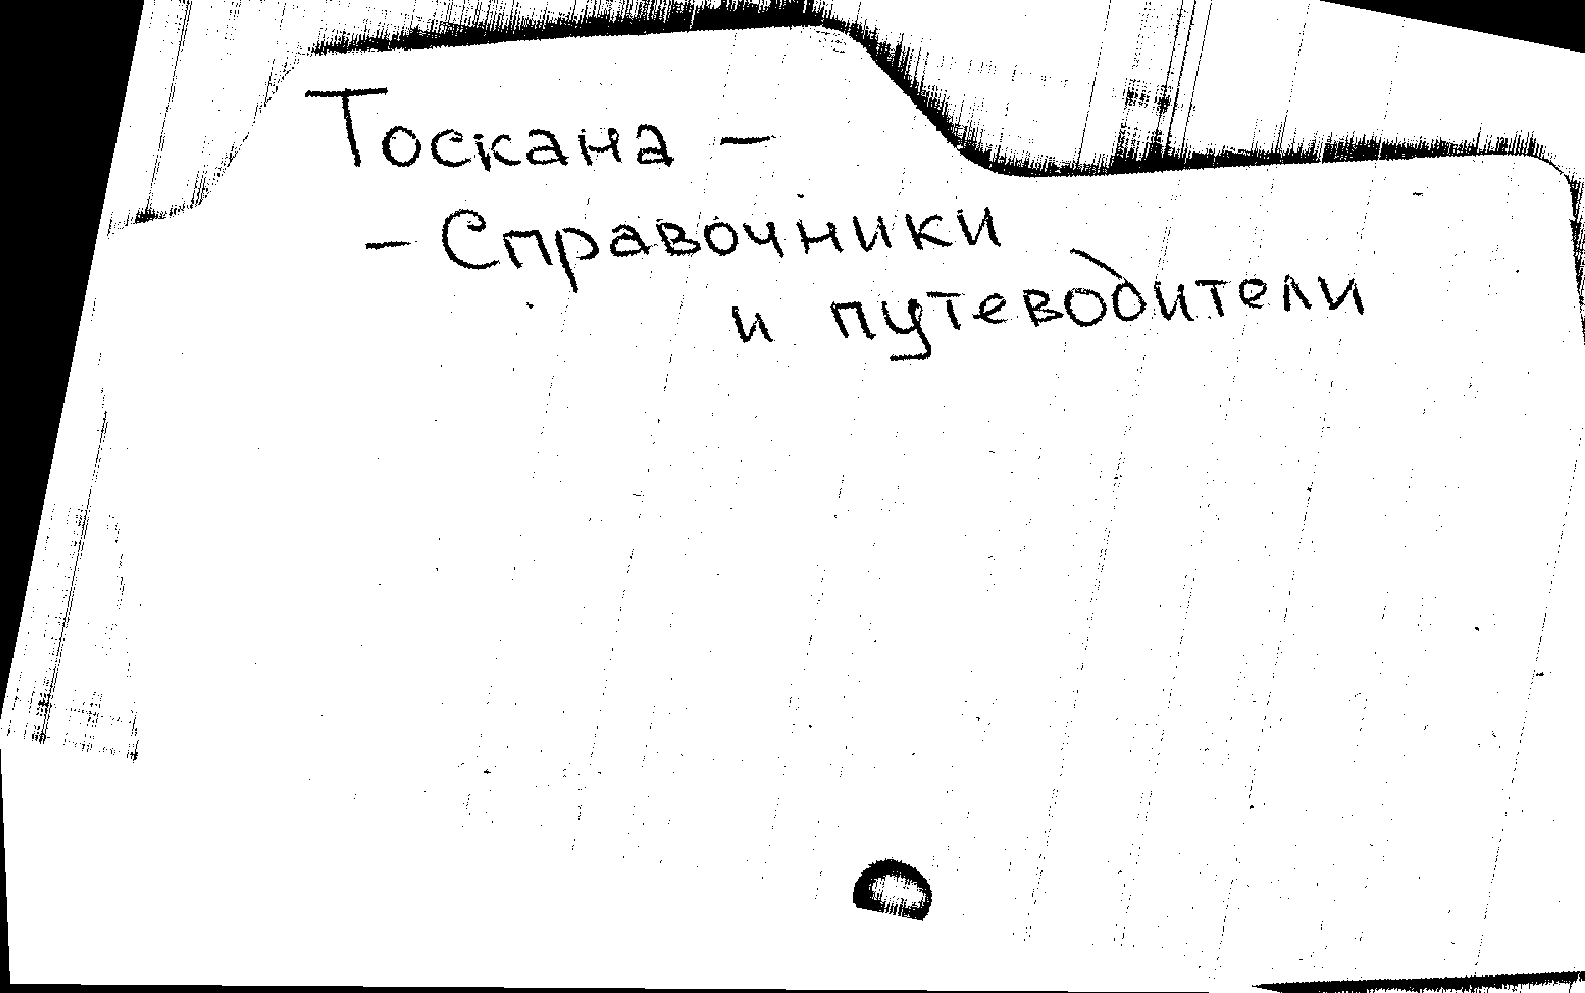 Тоскана -
- Справочники
и путеводители